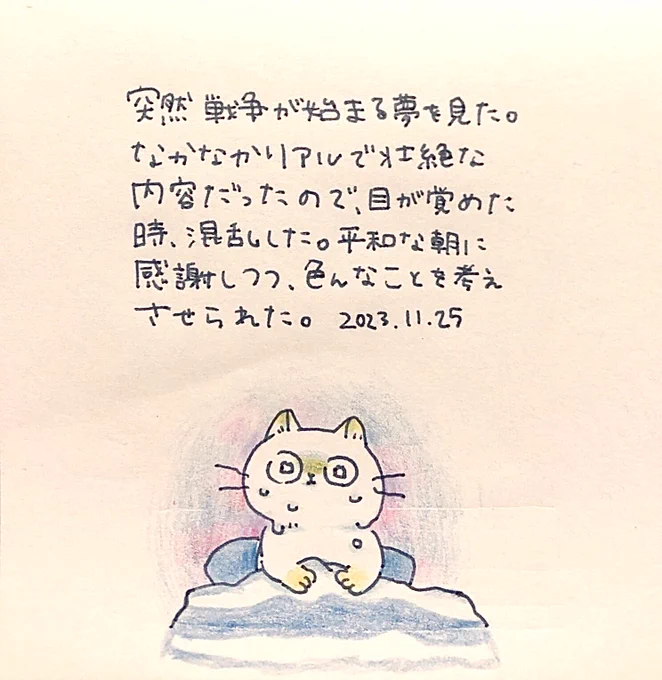 突然戦争が始まる夢を見た。
なかなかリアルで壮絶な
内容だったので、目が覚めた
時、混乱した。平和な朝に
感謝しつつ、色んなことを考え
させられた。 2023.11.25